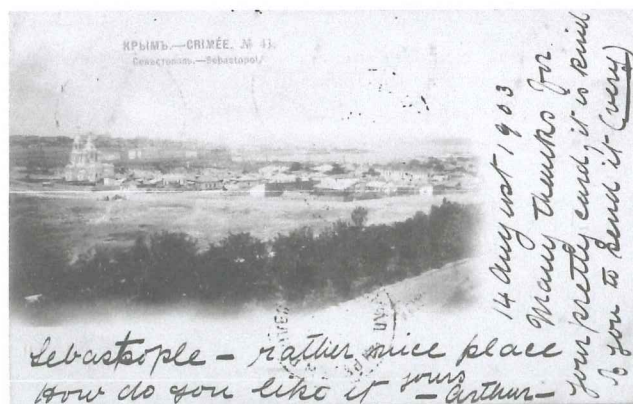 КРЫМЪ.—CRIMÉE. № 43.
Севастополь.—Sebastopol.
14 August 1903
Many thanks for
your pretty card, it is kind
of you to send it (very)
Sebastople – rather nice place
How do you like it yours
– Arthur –